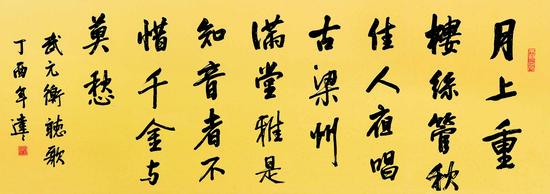 月上重
樓絲管秋
佳人夜唱
古梁州
滿堂誰是
知音者不
惜千金與
莫愁
武元衡聽歌
丁酉年